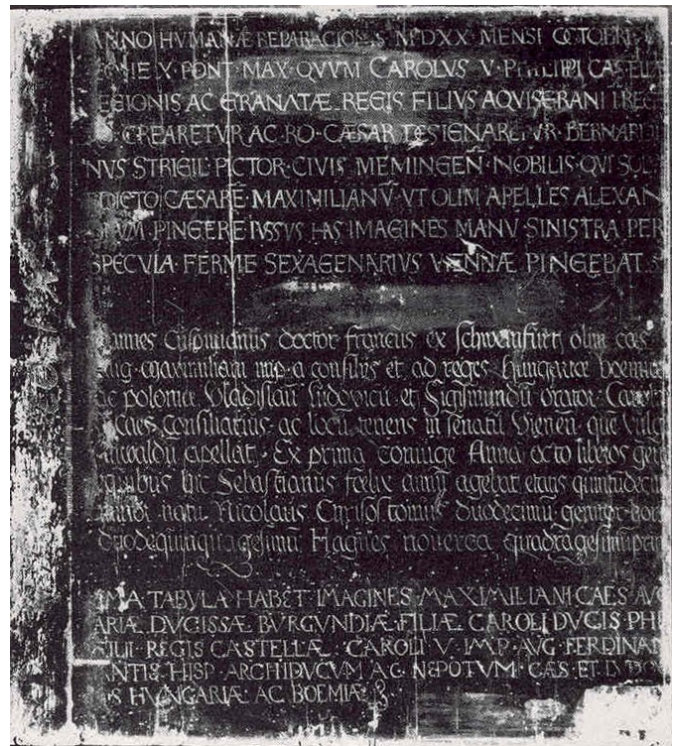 ANNO HVMANÆ REPARACIONIS MDXX MENSI OCTOBRI
X PONT MAX QVVM CAROLVS V PHILIPPI CASTELL
EGIONIS AC GRANATÆ REGIS FILIVS AQVISGRANI I REG
CREARETVR AC RO CÆSAR DESIGNARETVR BERNARDI
NVS STRIGIL PICTOR CIVIS MEMINGEN̄ NOBILIS QVI SOL
DICTO CÆSARE MAXIMILIANV̄ VT OLIM APELLES ALEXAN
PINGERE IVSSVS HAS IMAGINES MANV SINISTRA PER
SPECVLA FERME SEXAGENARIVS VIENNÆ PINGEBAT
Cuspinianus doctor francus ex schweinfurt olim caes
aug maximiliani imp a consiliis et ad reges hungariae boemiae
ac poloniae Vladislau Ludovicu et Sigismundu orator
caes consiliarius ac locu tenens in senatu Vienen que
apellat Ex prima coniuge Anna octo liberos
quibus hic Sebastianus foelix annu agebat etatis quintudecim
natu Nicolaus Chrisostomus duodecimu
duodequinquagesimu Hagnes noverca quadragesimuprim
TABVLA HABET IMAGINES MAXIMILIANI CAES AVG
ARIÆ DVGISSÆ BVRGVNDIÆ FILIÆ CAROLI DVCIS PHI
FILII REGIS CASTELLÆ CAROLI V IMP AVG FERDINAN
HISP ARCHIDVCVM AC NEPOTVM CÆS ET
HVNGARIÆ AC BOEMIÆ